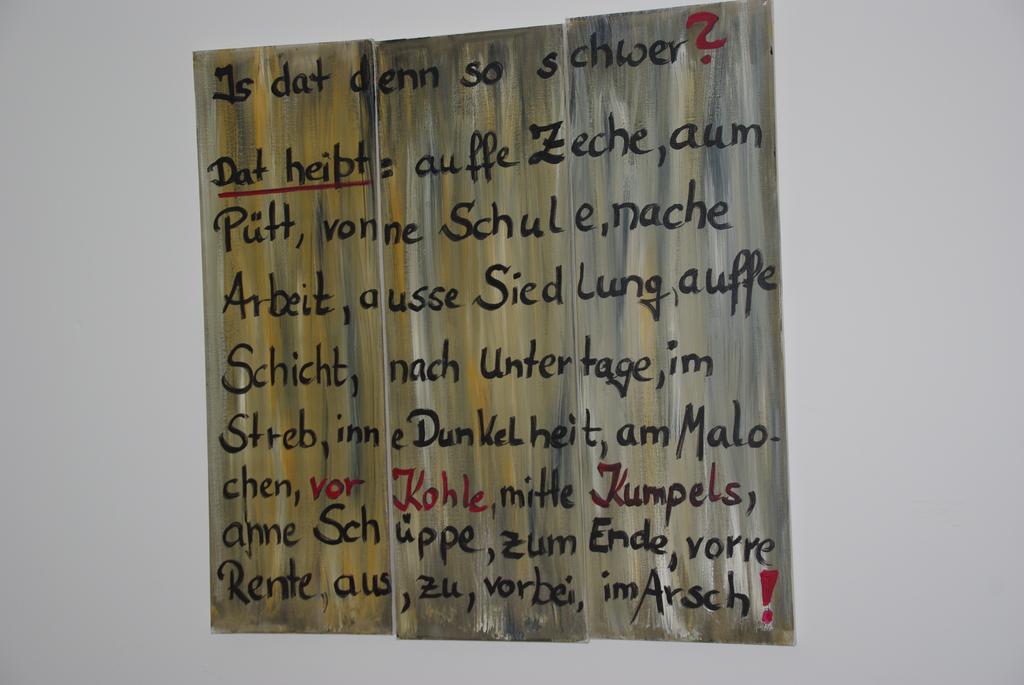 Is dat denn so schwer?
Dat heißt: auffe Zeche, aum
Pütt, vonne Schule, nache
Arbeit, ausse Siedlung, auffe
Schicht, nach Untertage, im
Streb, inne Dunkelheit, am Malo-
chen, vor Kohle, mitte Kumpels,
anne Schüppe, zum Ende, vorre
Rente, aus, zu, vorbei, im Arsch!